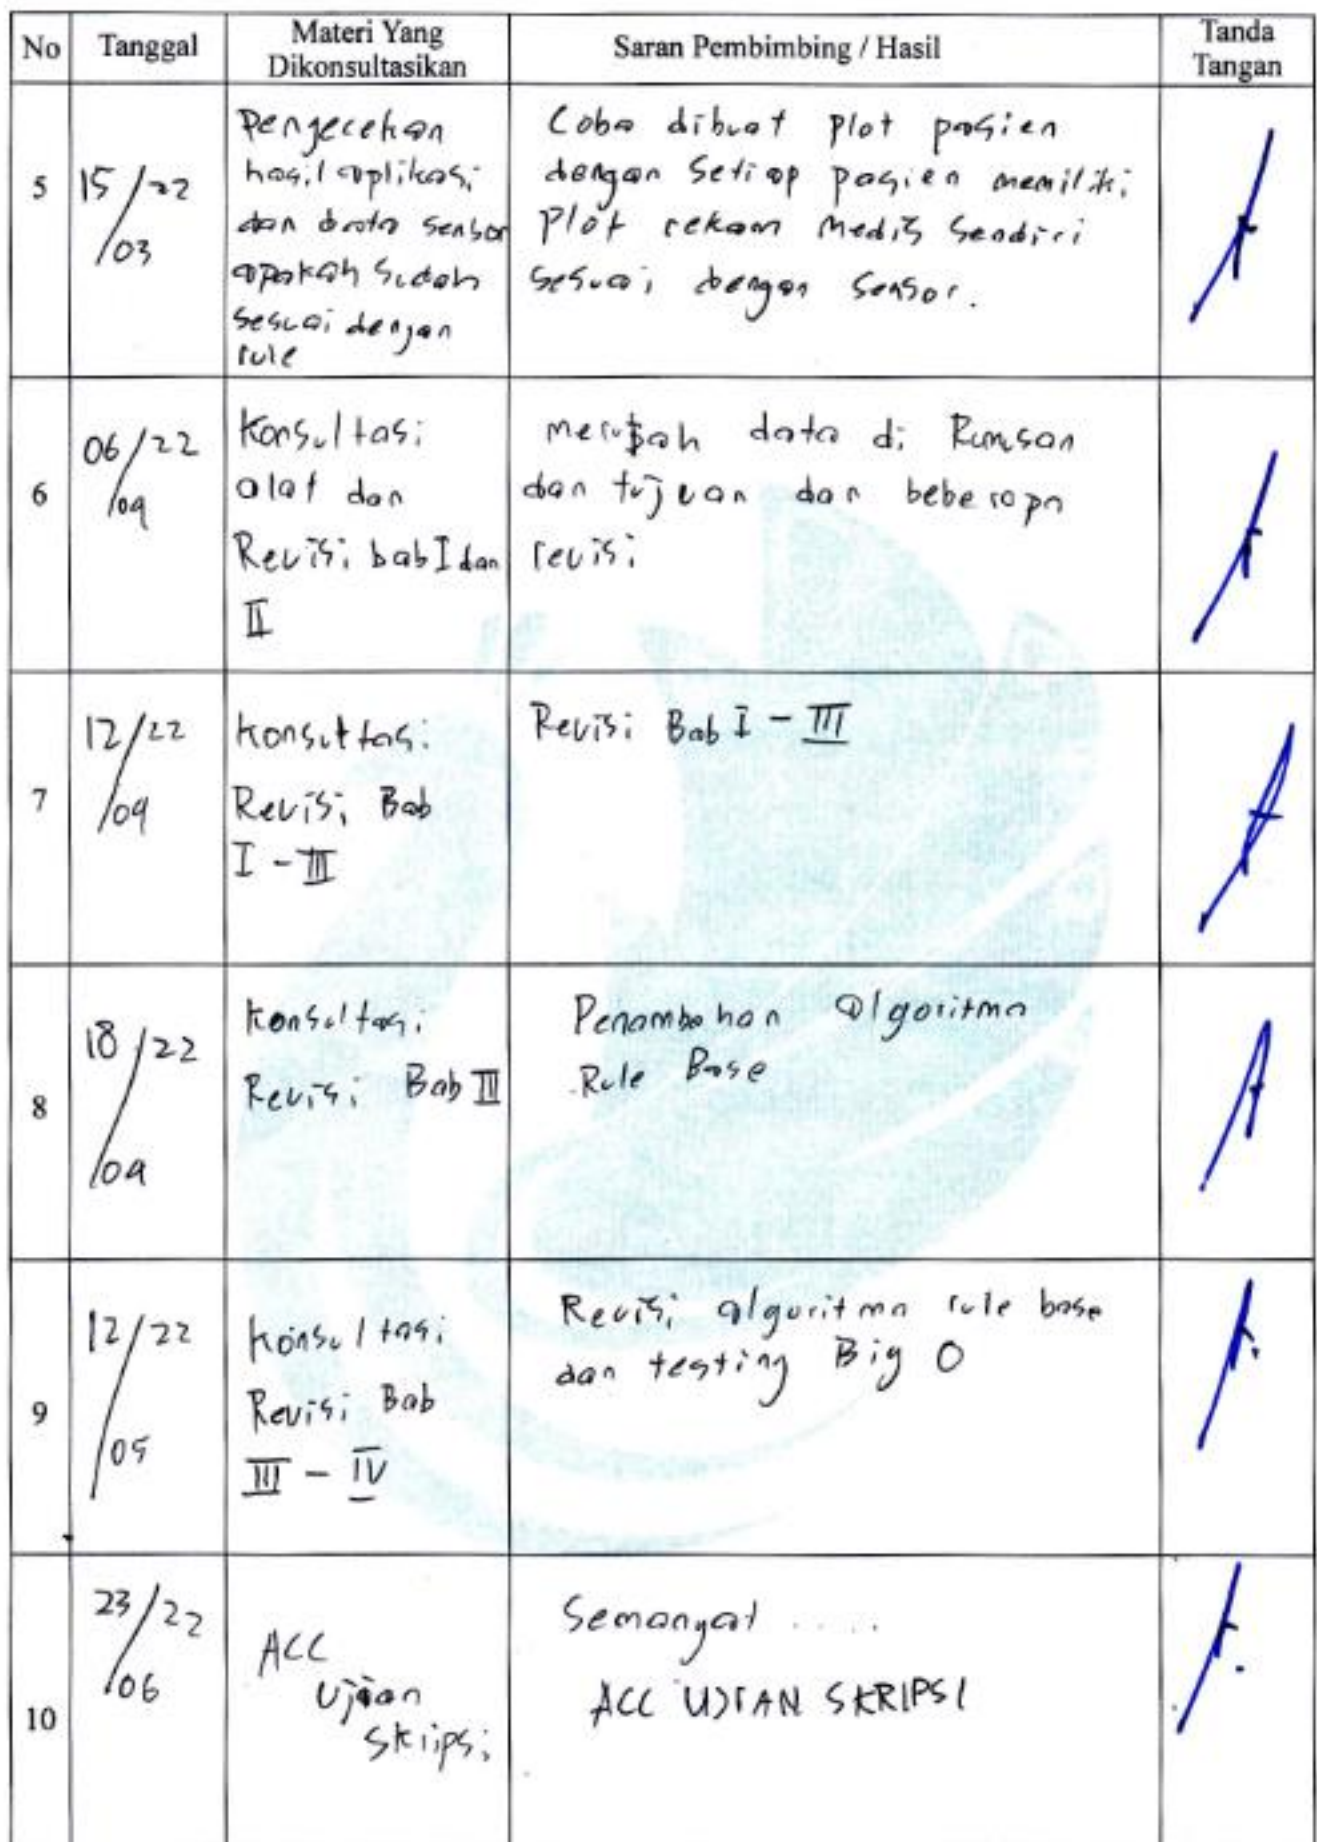 No Tanggal Materi Yang Dikonsultasikan Saran Pembimbing / Hasil Tanda Tangan
5
15/22
/03
Pengecekan
hasil aplikasi
dan data sensor
apakah sudah
sesuai dengan
rule
Coba dibuat plot pasien
dengan Setiap pasien memiliki
Plot rekam Medis Sendiri
sesuai dengan Sensor.
6
06/22
/04
Konsultasi
alat dan
Revisi bab I dan
II
merubah data di Rumusan
dan tujuan dan beberapa
revisi
7
12/22
/04
Konsultasi
Revisi Bab
I - III
Revisi Bab I - III
8
18/22
/04
Konsultasi
Revisi Bab III
Penambahan algoritma
Rule Base
9
12/22
/05
Konsultasi
Revisi Bab
III - IV
Revisi algoritma rule base
dan testing Big O
10
23/22
/06
ACC
Ujian
Skripsi
Semangat .....
ACC UJIAN SKRIPSI